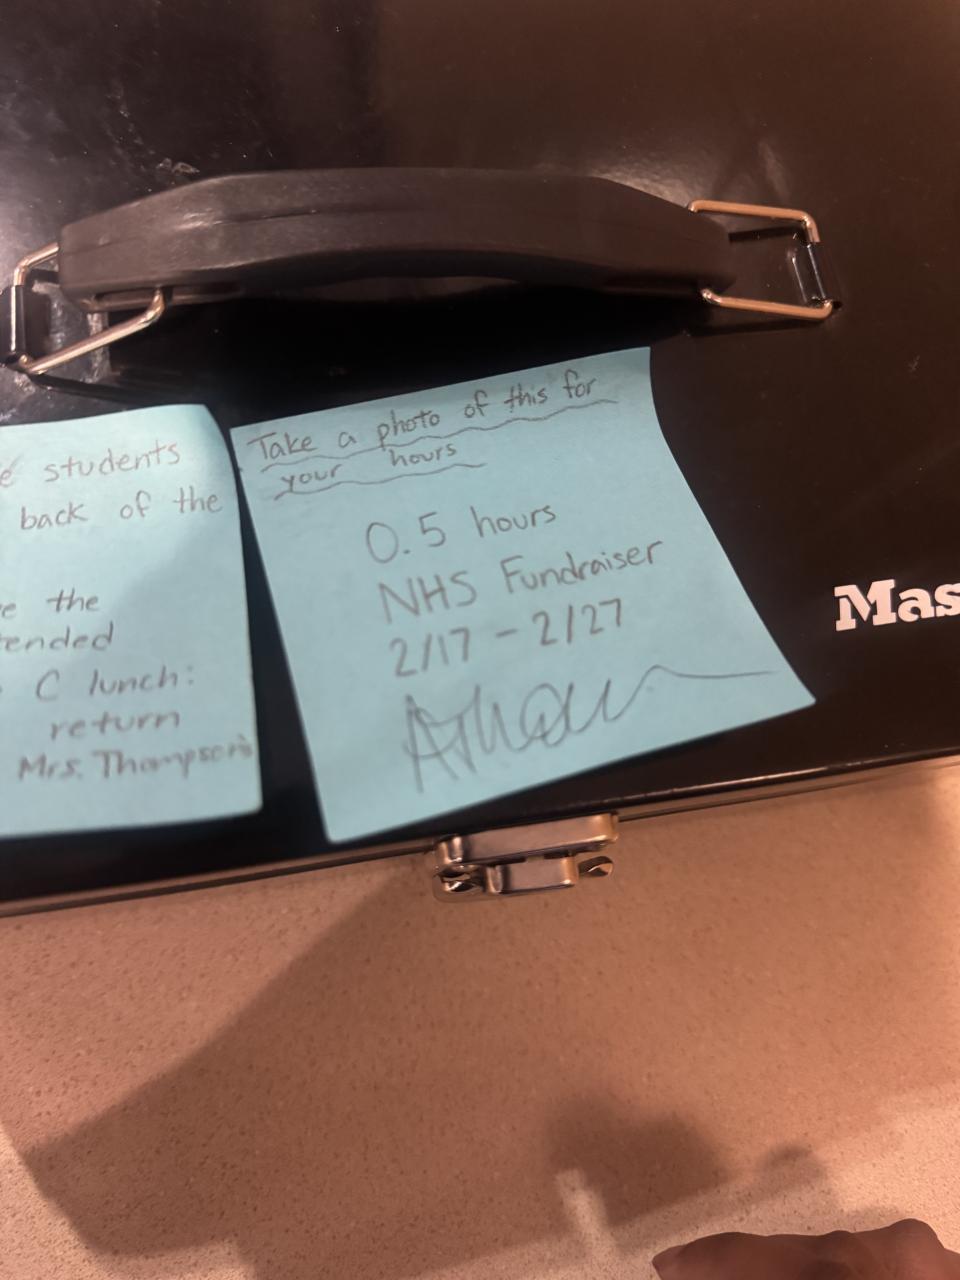 students
back of the
the
C lunch:
return
Mrs. Thompson's
Take a photo of this for
your hours
0.5 hours
NHS Fundraiser
2/17 - 2/27
Mas